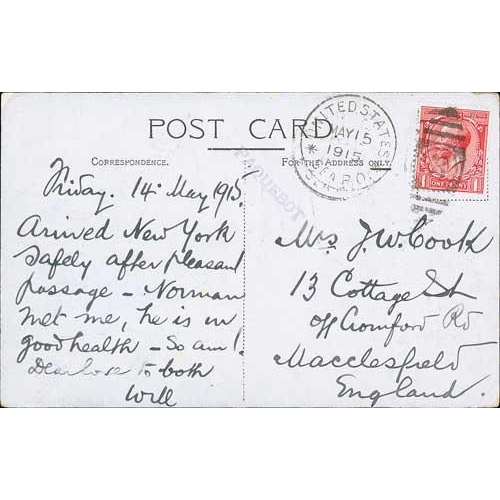 POST CARD
CORRESPONDENCE.
FOR THE ADDRESS ONLY.
UNITED STATES
MAY 15
1915
SEA P.O.
PAQUEBOT
ONE PENNY
1 1
Friday. 14 May 1915.
Arrived New York
safely after pleasant
passage – Norman
met me, he is in
good health – So am I.
Dear love to both
Will
Mrs J. W. Cook
13 Cottage St
off Cromford Rd
Macclesfield
England.